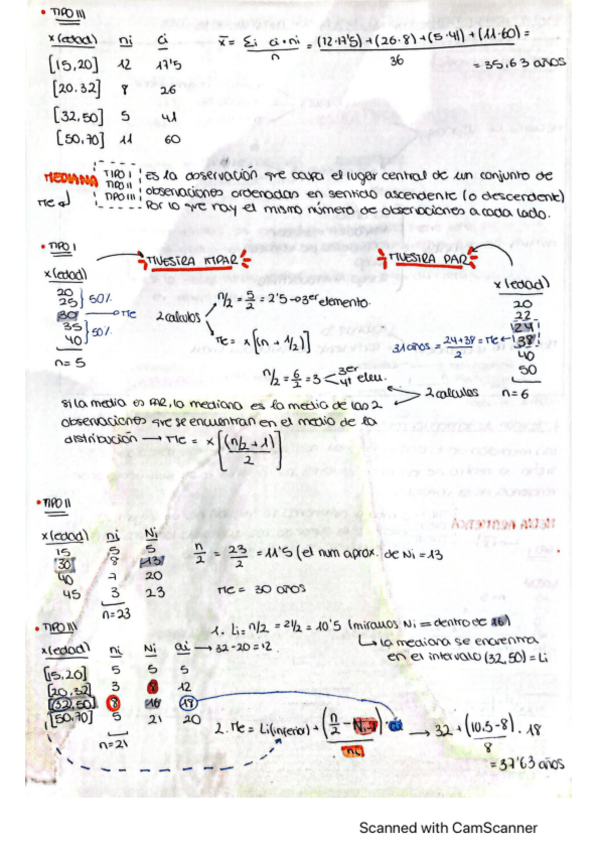 • TIPO III
x(edad) ni ci
[15,20] 12 17'5
[20,32] 8 26
[32,50] 5 41
[50,70] 11 60
x̄ = Σi ci·ni / n = (12·17'5)+(26·8)+(5·41)+(11·60) / 36 =
= 35,63 años
MEDIANA
Me
TIPO I
TIPO II
TIPO III
Es la observación que ocupa el lugar central de un conjunto de
observaciones ordenadas en sentido ascendente (o descendente)
Por lo que hay el mismo número de observaciones a cada lado.
• TIPO I
MUESTRA IMPAR
MUESTRA PAR
x(edad)
20
25
30
35
40
n=5
50%
→ Me
50%
2 calculos
n/2 = 5/2 = 2'5 → 3er elemento.
Me = x[(n + 1/2)]
x(edad)
20
22
24
38
40
50
n=6
31 años = 24+38/2 = Me
n/2 = 6/2 = 3 < 3er 4º elem.
2 calculos
si la media es PAR, la mediana es la media de las 2
observaciones que se encuentran en el medio de la
distribución → Me = x[(n/2 + 1)/2]
• TIPO II
x(edad) ni Ni
15 5 5
30 8 13
40 7 20
45 3 23
n=23
n/2 = 23/2 = 11'5 (el num aprox. de Ni = 13
Me = 30 años
• TIPO III
x(edad) ni Ni ai → 32-20=12.
[15,20] 5 5 5
[20,32] 3 8 12
[32,50] 8 16 18
[50,70] 5 21 20
n=21
1. Li= n/2 = 21/2 = 10'5 (miramos Ni = dentro de 16)
↳ la mediana se encuentra
en el intervalo (32,50) = Li
2. Me = Li(inferior) + (n/2 - Ni-1)/ni · ai → 32 + (10.5-8)/8 · 18
= 37'63 años
Scanned with CamScanner